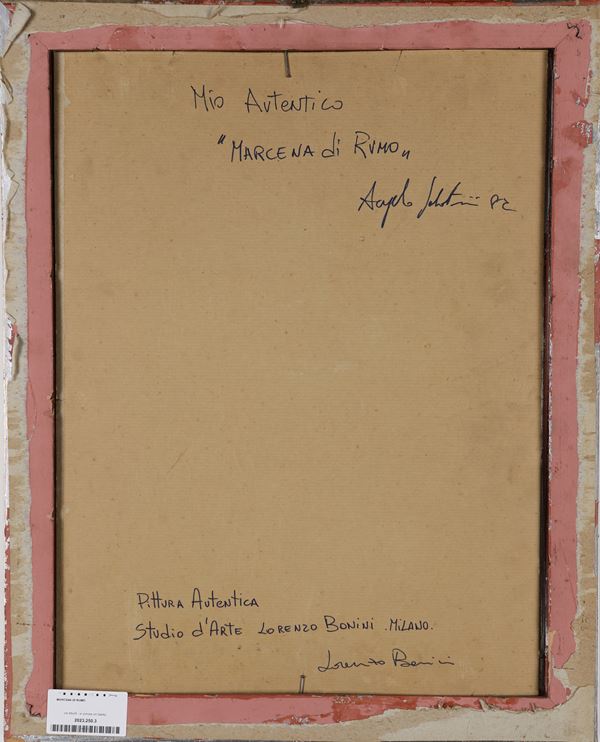 Mio Autentico
"MARCENA di RUMO"
Angelo 82
PiTTURA AUTENTICA
STUDIO d'ARTE LORENZO BONINI . MILANO.
Lorenzo Bonini
MARCENA DI RUMO
2023.250.3